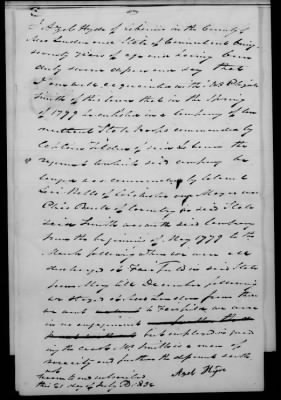 I Azel Hyde of Lebanon in the County of
New London and State of Connecticut being
seventy years of age and having been
duly sworn depose and say that
I am well acquainted with Mr Elijah
Smith of this town that in the Spring
of 1779 he enlisted in a company of Con
necticut State troops commanded by
Captain Tilden of said Lebanon the
regiment to which said company be
longed was commanded by Colonel
Levi Wells of Colchester and Major was
of Coventry in said State
said Smith was with said company
from the beginning of May 1779 to the
March following when we were all
discharged in Fairfield in said State
from May till December following
we staid in New London from there
we went to Fairfield we were
in no engagement
but employed in guard
ing the coast. Mr Smith is a man of
veracity and further the deponent saith
not
Azel Hyde
Sworn to and subscribed
this 21 day of July AD 1832